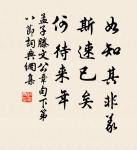 如知其非義
斯速已矣
何待來年
孟子滕文公章句下第
八節詞典網集